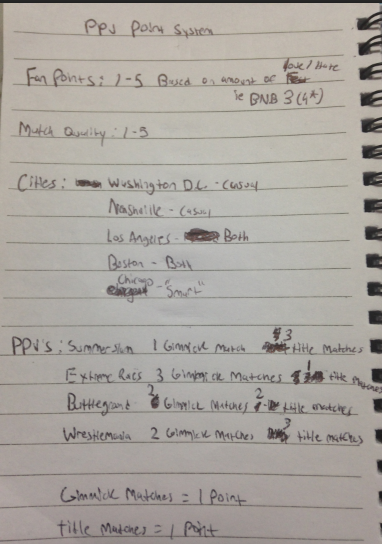 PPV Point System
Love/Hate
Fan Points: 1-5 Based on amount of
ie BNB 3 (4*)
Match Quality: 1-5
Cities: Washington D.C - Casual
Nashville - Casual
Los Angeles - Both
Boston - Both
Chicago
- "Smart"
PPV's: Summerslam 1 Gimmick Match 3 title Matches
Extreme Rules 3 Gimmick Matches 1 title Matches
Battleground 2 Gimmick Matches 2 title matches
Wrestlemania 2 Gimmick Matches 3 title matches
Gimmick Matches = 1 Point
title Matches = 1 Point